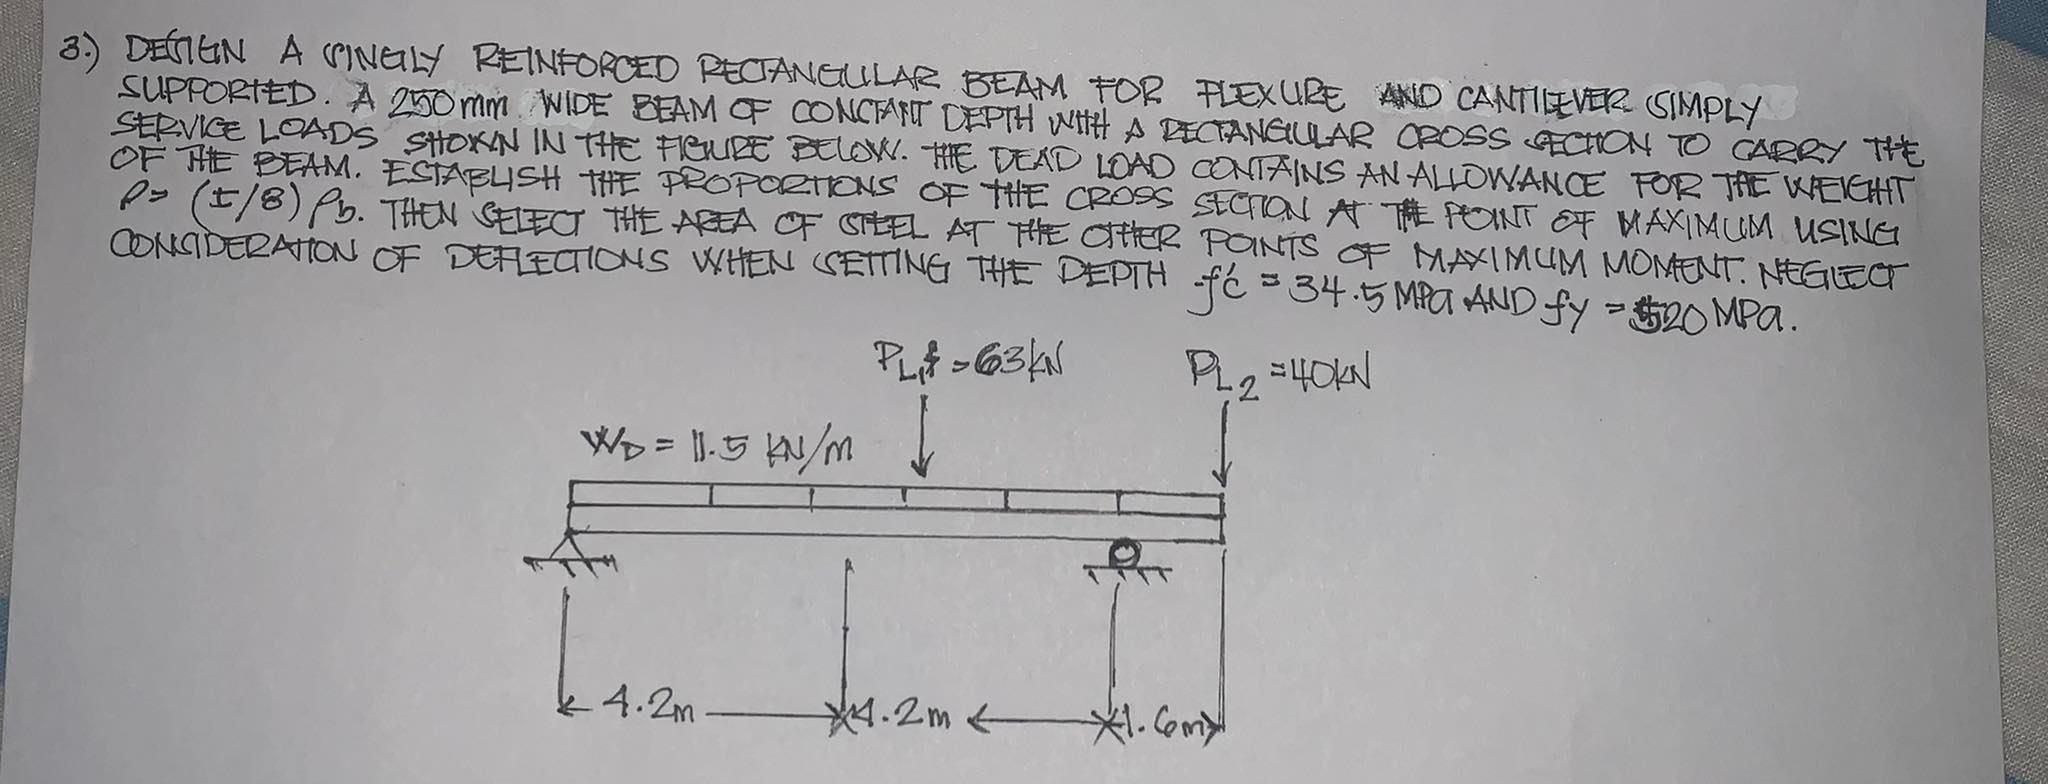 3.) DESIGN A SINGLY REINFORCED RECTANGULAR BEAM FOR FLEXURE AND CANTILEVER SIMPLY
SUPPORTED. A 250mm WIDE BEAM OF CONSTANT DEPTH WITH A RECTANGULAR CROSS SECTION TO CARRY THE
SERVICE LOADS SHOWN IN THE FIGURE BELOW. THE DEAD LOAD CONTAINS AN ALLOWANCE FOR THE WEIGHT
OF THE BEAM. ESTABLISH THE PROPORTIONS OF THE CROSS SECTION AT THE POINT OF MAXIMUM USING
ρ= (5/8) ρb. THEN SELECT THE AREA OF STEEL AT THE OTHER POINTS OF MAXIMUM MOMENT. NEGLECT
CONSIDERATION OF DEFLECTIONS WHEN SETTING THE DEPTH f'c = 34.5 MPa AND fy = 520 MPa.
PL,1 = 63kN
PL2 = 40KN
WD = 11.5 KN/m
4.2m
4.2m
1.6m